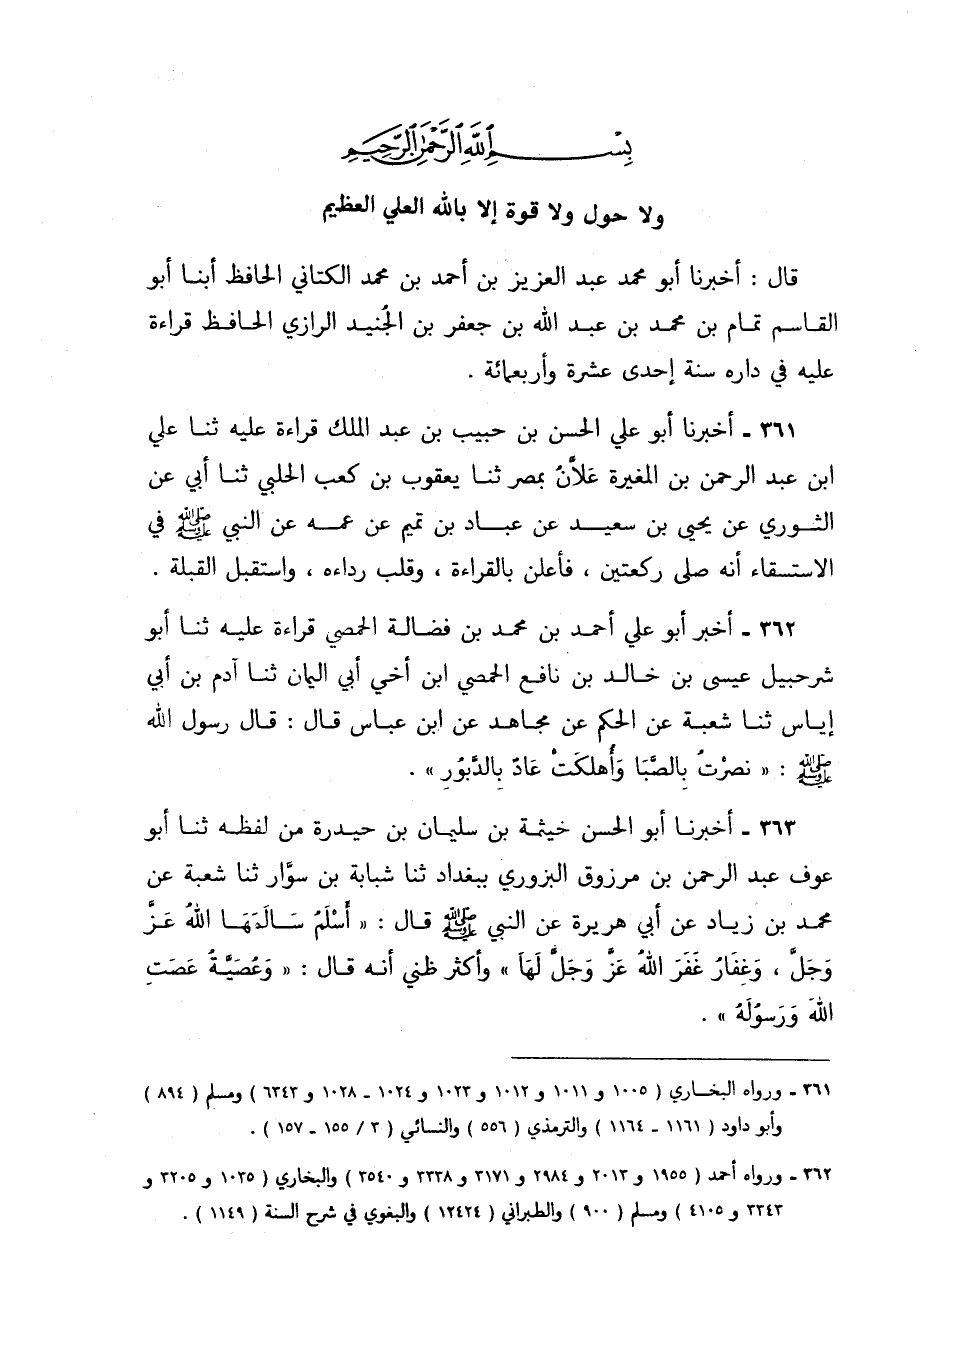 بسم الله الرحمن الرحيم
ولا حول ولا قوة إلا بالله العلي العظيم
قال : أخبرنا أبو محمد عبد العزيز بن أحمد بن محمد الكتاني الحافظ أبنا أبو
القاسم تمام بن محمد بن عبد الله بن جعفر بن الجُنيد الرازي الحافظ قراءة
عليه في داره سنة إحدى عشرة وأربعمائة .
٣٦١ - أخبرنا أبو علي الحسن بن حبيب بن عبد الملك قراءة عليه ثنا علي
ابن عبد الرحمن بن المغيرة عَلَّانُ بمصر ثنا يعقوب بن كعب الحلبي ثنا أبي عن
الثوري عن يحيى بن سعيد عن عباد بن تميم عن عمه عن النبي ﷺ في
الاستسقاء أنه صلى ركعتين ، فأعلن بالقراءة ، وقلب رداءه ، واستقبل القبلة .
٣٦٢ - أخبر أبو علي أحمد بن محمد بن فضالة الحمصي قراءة عليه ثنا أبو
شرحبيل عيسى بن خالد بن نافع الحمصي ابن أخي أبي اليمان ثنا آدم بن أبي
إياس ثنا شعبة عن الحكم عن مجاهد عن ابن عباس قال : قال رسول الله
ﷺ : « نصرْتُ بِالصَّبَا وَأُهلكَتْ عَادٌ بِالدَّبُورِ » .
٣٦٣ - أخبرنا أبو الحسن خيثمة بن سليمان بن حيدرة من لفظه ثنا أبو
عوف عبد الرحمن بن مرزوق البزوري ببغداد ثنا شبابة بن سوَّار ثنا شعبة عن
محمد بن زياد عن أبي هريرة عن النبي ﷺ قال : « أَسْلَمُ سَالَمَهَا اللهُ عَزَّ
وَجَلَّ ، وَغِفَارُ غَفَرَ اللهُ عَزَّ وَجَلَّ لَهَا » وأكثر ظني أنه قال : « وَعُصَيَّةُ عَصَتِ
اللهَ وَرَسوُلَهُ » .
٣٦١ - ورواه البخاري ( ١٠٠٥ و ١٠١١ و ١٠١٢ و ١٠٢٣ و ١٠٢٤ - ١٠٢٨ و ٦٣٤٣ ) ومسلم ( ٨٩٤ )
وأبو داود ( ١١٦١ - ١١٦٤ ) والترمذي ( ٥٥٦ ) والنسائي ( ٣ / ١٥٥ - ١٥٧ ) .
٣٦٢ - ورواه أحمد ( ١٩٥٥ و ٢٠١٣ و ٢٩٨٤ و ٣١٧١ و ٣٣٣٨ و ٣٥٤٠ ) والبخاري ( ١٠٣٥ و ٣٢٠٥ و
٣٣٤٣ و ٤١٠٥ ) ومسلم ( ٩٠٠ ) والطبراني ( ١٢٤٢٤ ) والبغوي في شرح السنة ( ١١٤٩ ) .